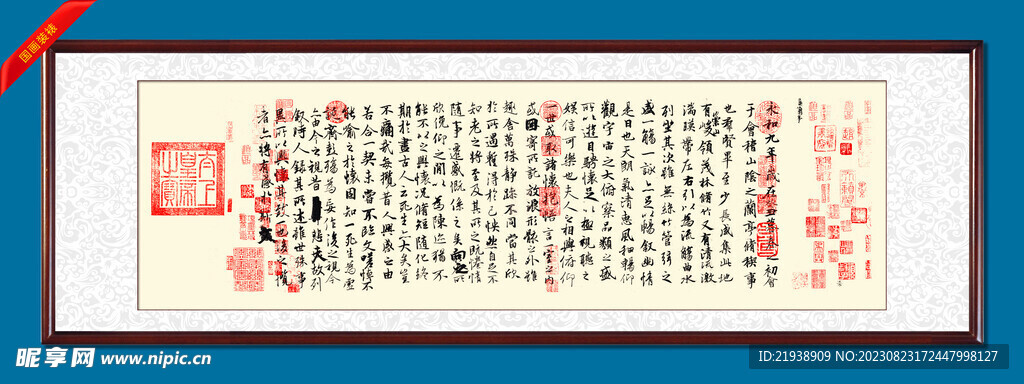 国画装裱
永和九年歲在癸丑暮春之初會
于會稽山陰之蘭亭脩稧事
也羣賢畢至少長咸集此地
有崇山峻領茂林脩竹又有清流激
湍暎帶左右引以為流觴曲水
列坐其次雖無絲竹管弦之
盛一觴一詠上足以暢敘幽情
是日也天朗氣清惠風和暢仰
觀宇宙之大俯察品類之盛
所以遊目騁懷足以極視聽之
娛信可樂也夫人之相與俯仰
一世或取諸懷抱悟言一室之內
或因寄所託放浪形骸之外雖
趣舍萬殊靜躁不同當其欣
於所遇蹔得於己怏然自足不
知老之將至及其所之既惓情
隨事遷感慨係之矣向之所
欣俛仰之閒以為陳迹猶不
能不以之興懷況脩短隨化終
期於盡古人云死生亦大矣豈
不痛哉每攬昔人興感之由
若合一契未嘗不臨文嗟悼不
能喻之於懷固知一死生為虛
誕齊彭殤為妄作後之視今
亦由今之視昔悲夫故列
敘時人錄其所述雖世殊事
異所以興懷其致一也後之攬
者亦將有感於斯文
太上
皇帝
之寶
昵享网 www.nipic.cn
ID:21938909 NO:20230823172447998127